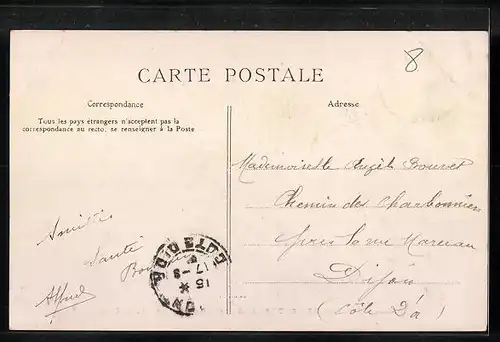 8
CARTE POSTALE
Correspondance
Adresse
Tous les pays étrangers n'acceptent pas la
correspondance au recto, se renseigner à la Poste
Mademoiselle Angèle Bouvet
Chemin des Charbonniers
près la rue Marceau
Dijon
(Côte d'Or)
Amitiés
Santé
Alfred
COTE D'OR
15 * 17-8